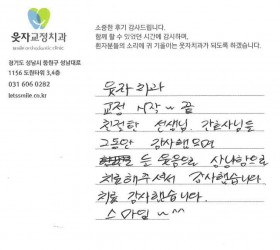 웃자교정치과
smile orthodontic clinic
경기도 성남시 중원구 성남대로
1156 도원타워 3,4층
031 606 0282
letssmile.co.kr
소중한 후기 감사드립니다.
함께 할 수 있었던 시간에 감사하며,
환자분들의 소리에 귀 기울이는 웃자치과가 되도록 하겠습니다.
웃자치과
교정 시작 ~ 끝
친절한 선생님, 간호사님들
그동안 감사했으며
늘 웃음으로 상냥함으로
치료해주셔서 감사했습니다
치료 감사했습니다.
스마일 ^^